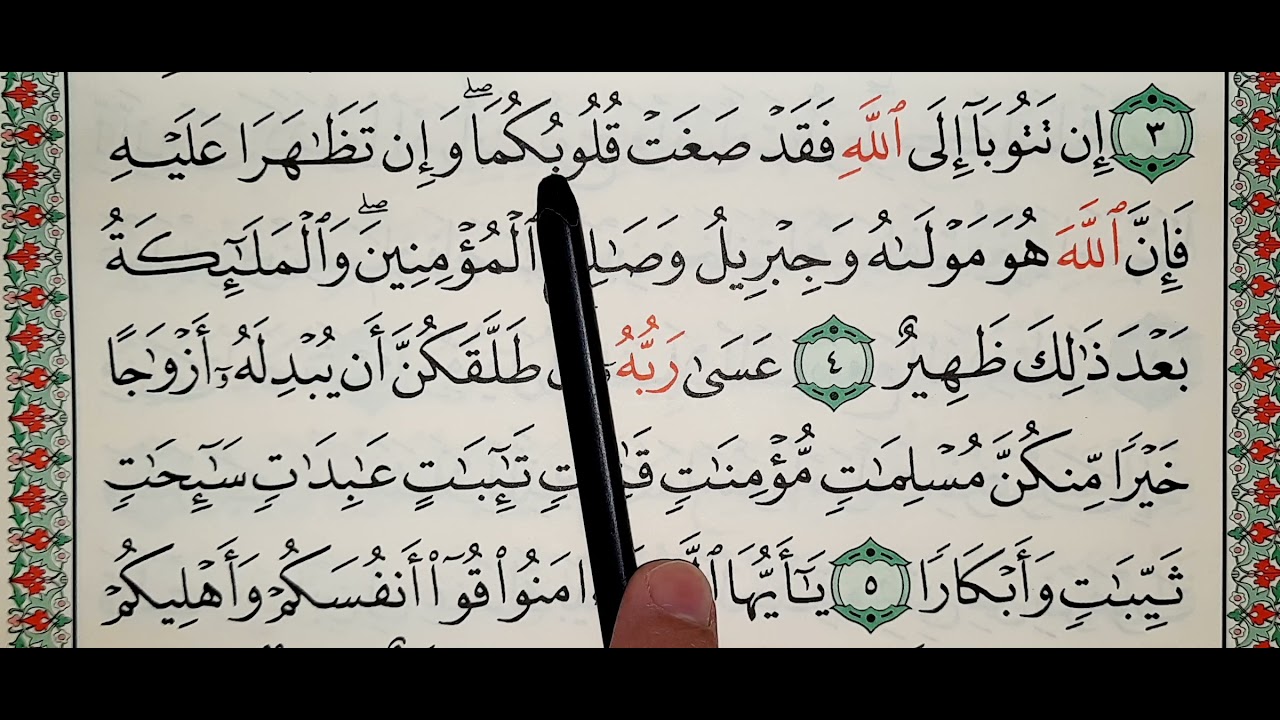 ٣ إِن تَتُوبَآ إِلَى ٱللَّهِ فَقَدۡ صَغَتۡ قُلُوبُكُمَاۖ وَإِن تَظَٰهَرَا عَلَيۡهِ
فَإِنَّ ٱللَّهَ هُوَ مَوۡلَىٰهُ وَجِبۡرِيلُ وَصَٰلِ ٱلۡمُؤۡمِنِينَۖ وَٱلۡمَلَٰٓئِكَةُ
بَعۡدَ ذَٰلِكَ ظَهِيرٌ ٤ عَسَىٰ رَبُّهُۥٓ طَلَّقَكُنَّ أَن يُبۡدِلَهُۥٓ أَزۡوَٰجًا
خَيۡرٗا مِّنكُنَّ مُسۡلِمَٰتٖ مُّؤۡمِنَٰتٖ تَٰٓئِبَٰتٍ عَٰبِدَٰتٖ سَٰٓئِحَٰتٖ
ثَيِّبَٰتٖ وَأَبۡكَارٗا ٥ يَٰٓأَيُّهَا ءَامَنُواْ قُوٓاْ أَنفُسَكُمۡ وَأَهۡلِيكُمۡ